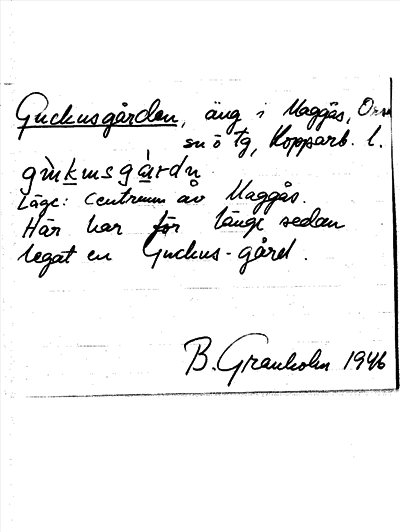 Guckusgården, äng i Maggås, Orn
snö tg, Kopparb. l.
Läge: Centrum av Maggås.
Här har för länge sedan
legat en Guckus-gård.
B. Granholm 1946